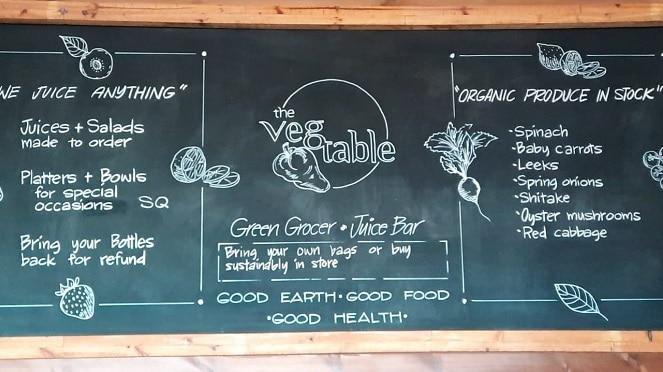 WE JUICE ANYTHING"
Juices + Salads
made to order
Platters + Bowls
for special
occasions SQ
Bring your Bottles
back for refund
the
veg
table
Green Grocer • Juice Bar
Bring your own bags or buy
sustainably in store
GOOD EARTH • GOOD FOOD
• GOOD HEALTH •
"ORGANIC PRODUCE IN STOCK"
• Spinach
• Baby carrots
• Leeks
• Spring onions
• Shitake
• Oyster mushrooms
• Red cabbage